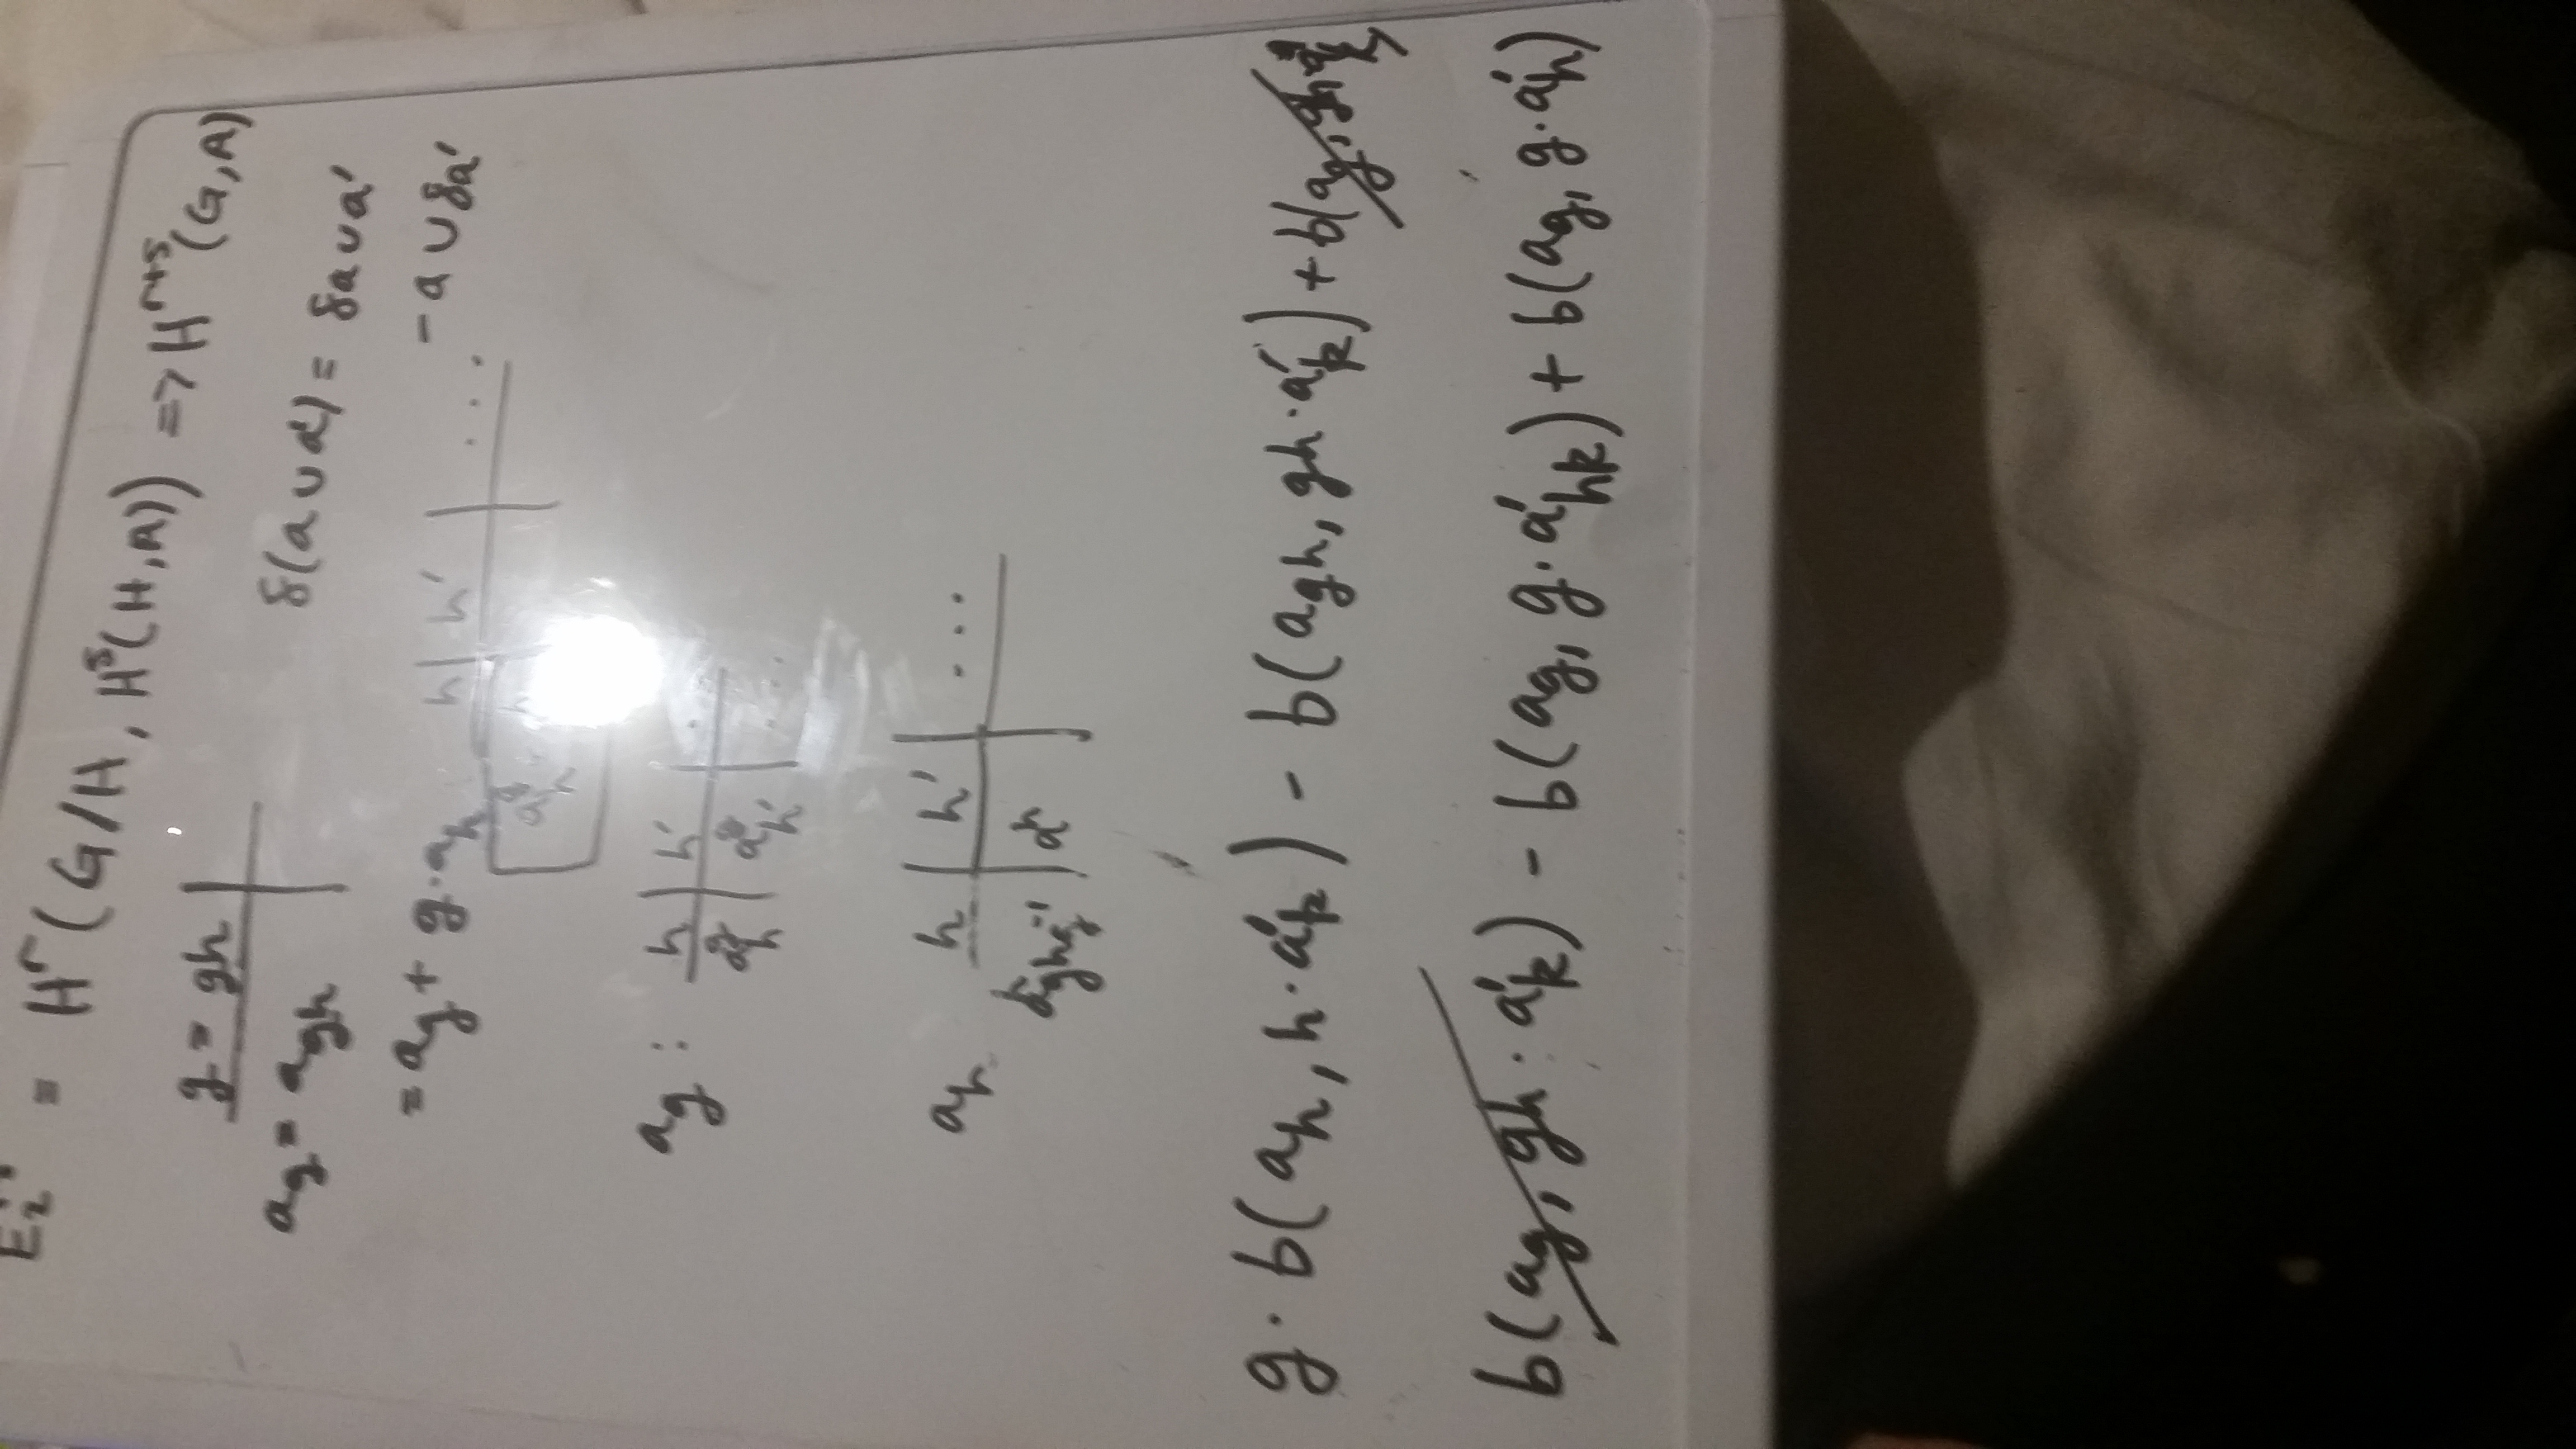 E₂ = Hʳ(G/H, Hˢ(H,A)) => Hʳ⁺ˢ(G,A)
g = gh
a_g = a_gh
δ(a ∪ a') = δa ∪ a'
= a_g + g·a_h
- a ∪ δa'
h | h' | ...
a^g_h
a_g : h | h' | ..
a^g_h | a^g_h' | ...
a_h h | h' | ...
ghg⁻¹ | a^h
g · b(a_h, h·a'_k) - b(a_gh, gh·a'_k) + b(a_g, gh·a'_k)
b(a_g, gh·a'_k) - b(a_g, g·a'_hk) + b(a_g, g·a'_h)